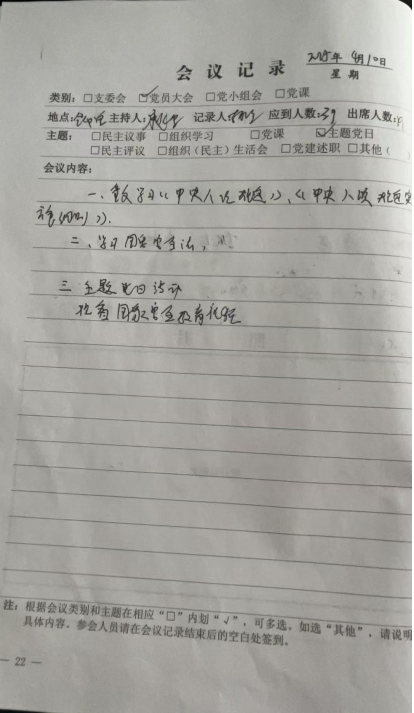 会议记录
2025年4月10日
星期
类别：□支委会 ☑党员大会 □党小组会 □党课
地点： 主持人： 记录人 应到人数：39 出席人数：
主题：□民主议事 □组织学习 □党课 ☑主题党日
□民主评议 □组织（民主）生活会 □党建述职 □其他（
会议内容：
一、 学习《中央八 规定》、《中央八项规定实
施细则》。
二、学习国家安全法，
三 主题党日活动
观看国家安全教育
注：根据会议类别和主题在相应“□”内划“√”，可多选。如选“其他”，请说明
具体内容。参会人员请在会议记录结束后的空白处签到。
— 22 —